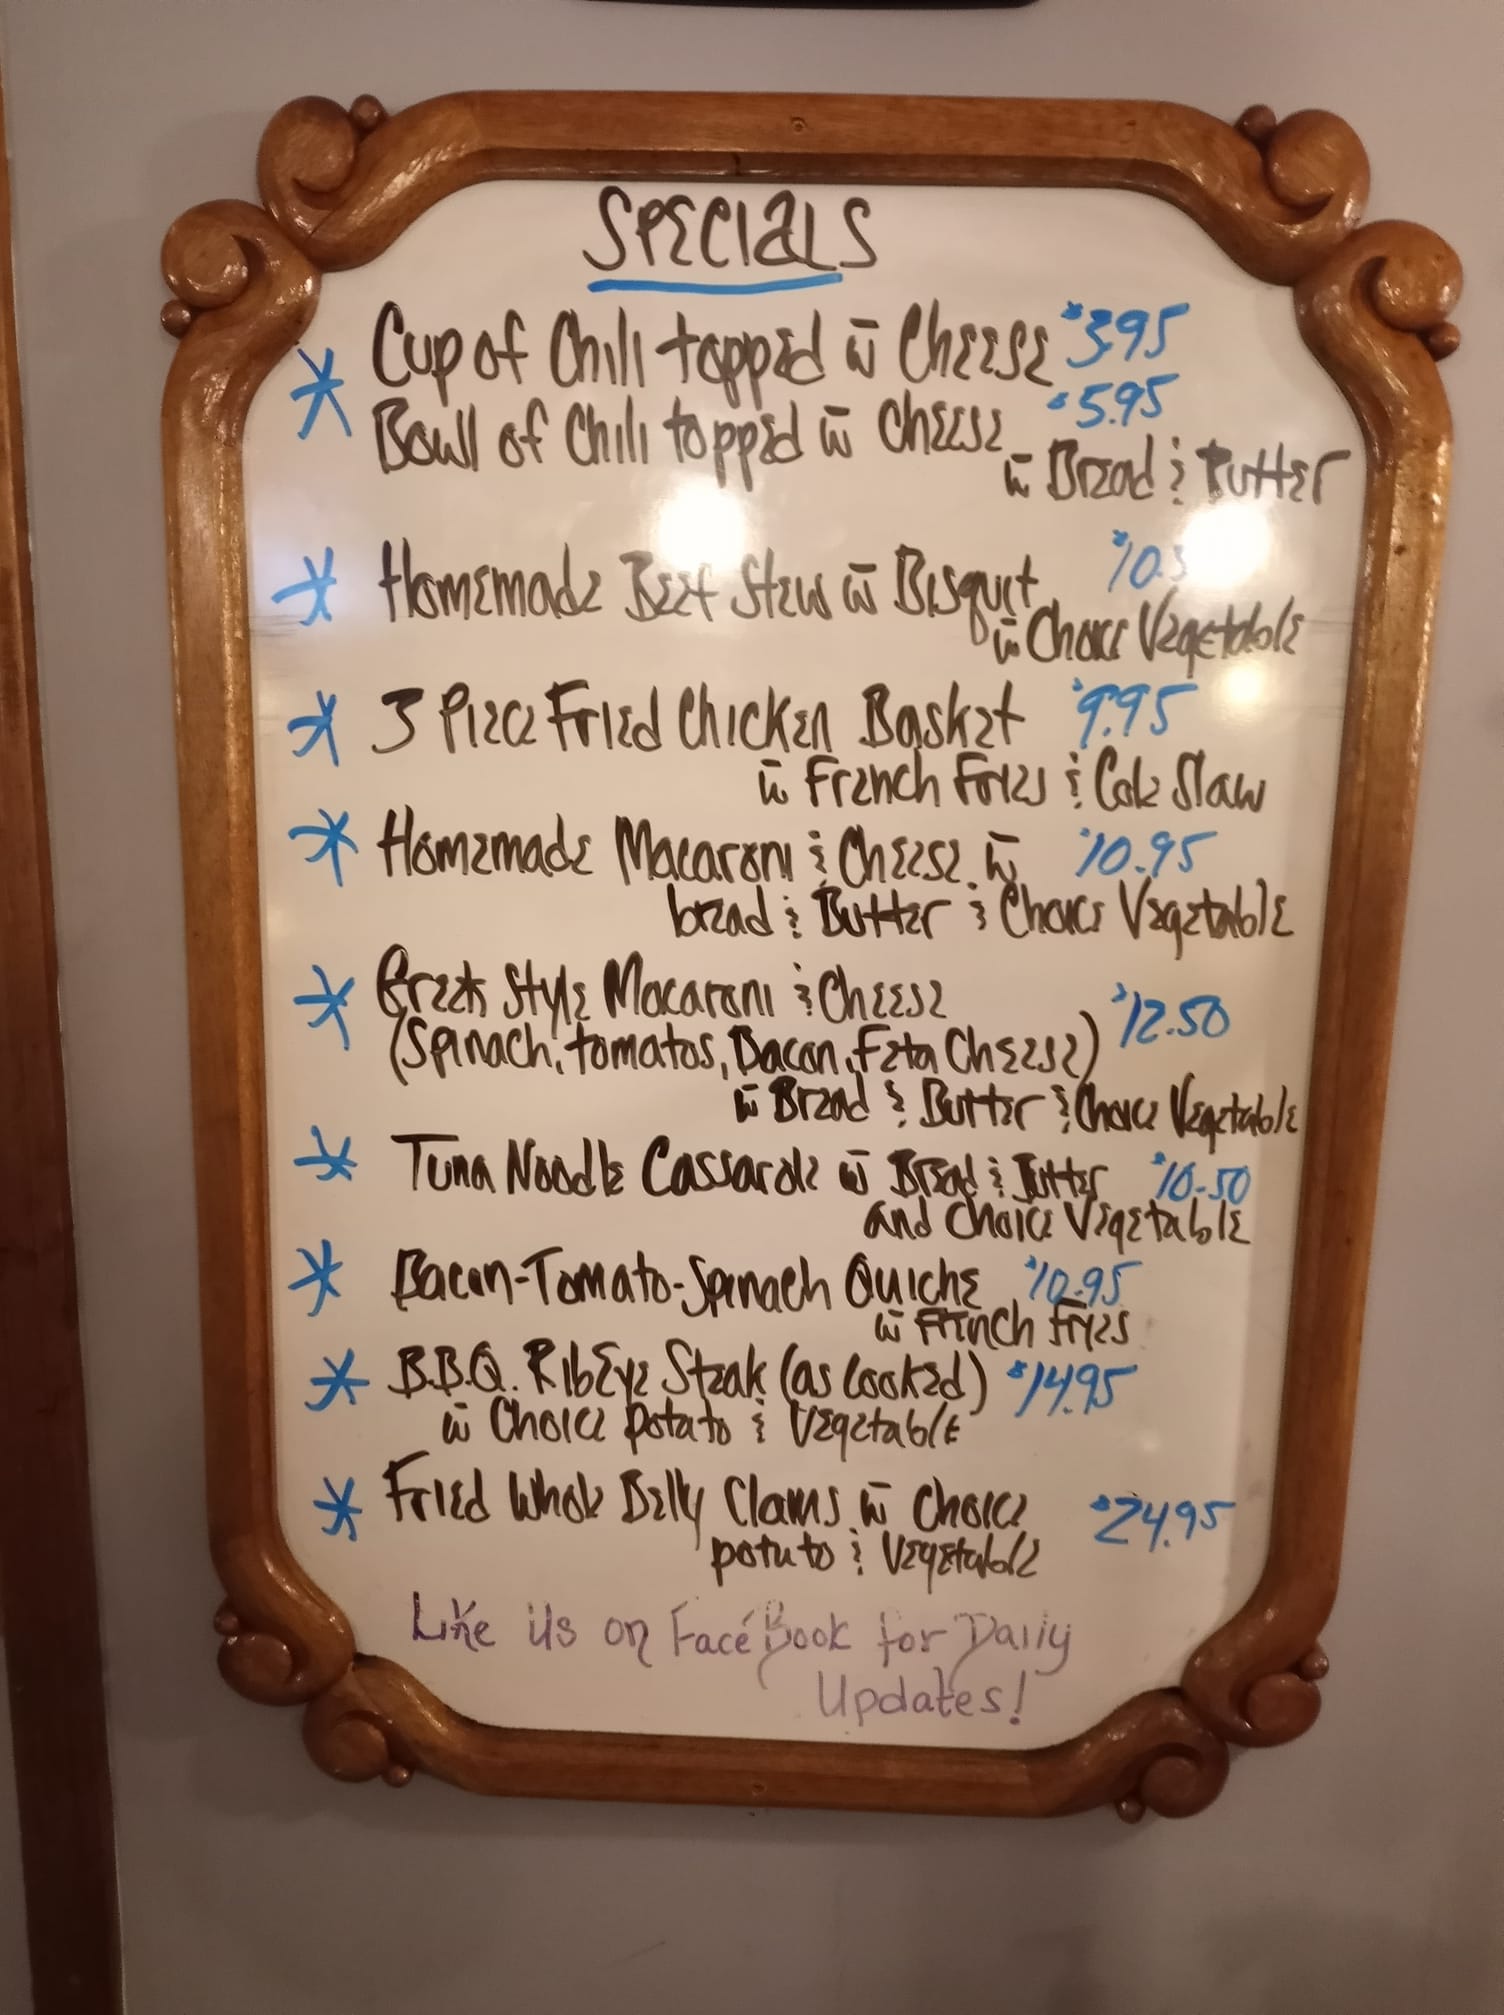 SPECIALS
Cup of Chili topped w Cheese $3.95
Bowll of Chili topped w Cheese $5.95
w Bread & Butter
Homemade Beef Stew w Bisquit
w Choice Vegetable
3 Piece Fried Chicken Basket $9.95
w French Fries & Cole Slaw
Homemade Macaroni & Cheese w $10.95
bread & Butter & Choice Vegetable
Greek Style Macaroni & Cheese
(Spinach, tomatos, Bacon, Feta Cheese) $12.50
w Bread & Butter & Choice Vegetable
Tuna Noodle Cassarole w Bread & Butter $10.50
and Choice Vegetable
Bacon-Tomato-Spinach Quiche $10.95
w French Fryes
B.B.Q. RibEye Steak (as Cooked) $14.95
w Choice potato & Vegetable
Fried Whole Belly Clams w Choice $24.95
potato & Vegetable
Like Us on FaceBook for Daily
Updates!